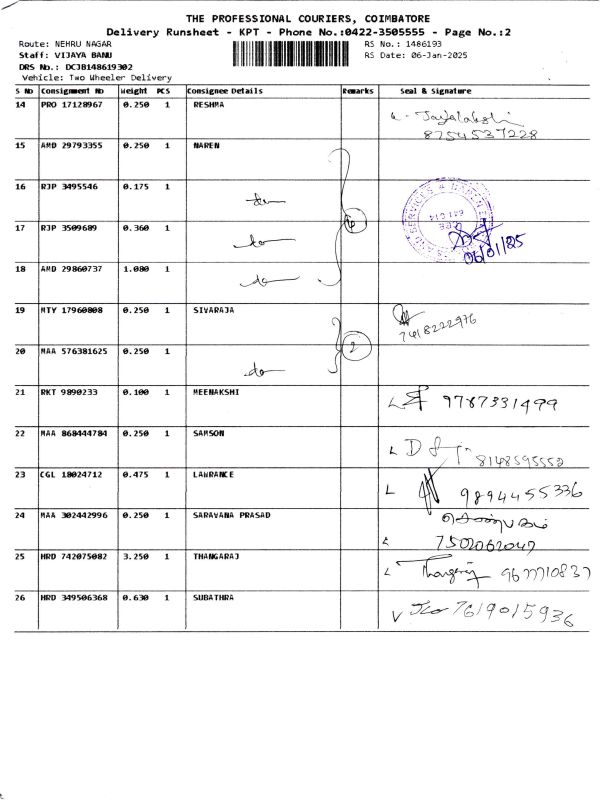 THE PROFESSIONAL COURIERS, COIMBATORE
Delivery Runsheet - KPT - Phone No.:0422-3505555 - Page No.:2
Route: NEHRU NAGAR RS No.: 1486193
Staff: VIJAYA BANU RS Date: 06-Jan-2025
DRS No.: DCJB148619302
Vehicle: Two Wheeler Delivery
S No Consignment No Weight PCS Consignee Details Remarks Seal & Signature
14 PRO 17128967 0.250 1 RESHMA
8754537228
15 AMD 29793355 0.250 1 NAREN
16 RJP 3495546 0.175 1 do
17 RJP 3509689 0.360 1 do
06/01/25
18 AMD 29860737 1.080 1 do
19 MTY 17960808 0.250 1 SIVARAJA
7418222976
20 MAA 576381625 0.250 1 do 2
21 RKT 9890233 0.100 1 MEENAKSHI 9787331499
22 MAA 868444784 0.250 1 SAMSON 8148595552
23 CGL 18024712 0.475 1 LAWRANCE 9894455336
24 MAA 302442996 0.250 1 SARAVANA PRASAD
7502062047
25 HRD 742075082 3.250 1 THANGARAJ Thangaraj
26 HRD 349506368 0.630 1 SUBATHRA 7619015936